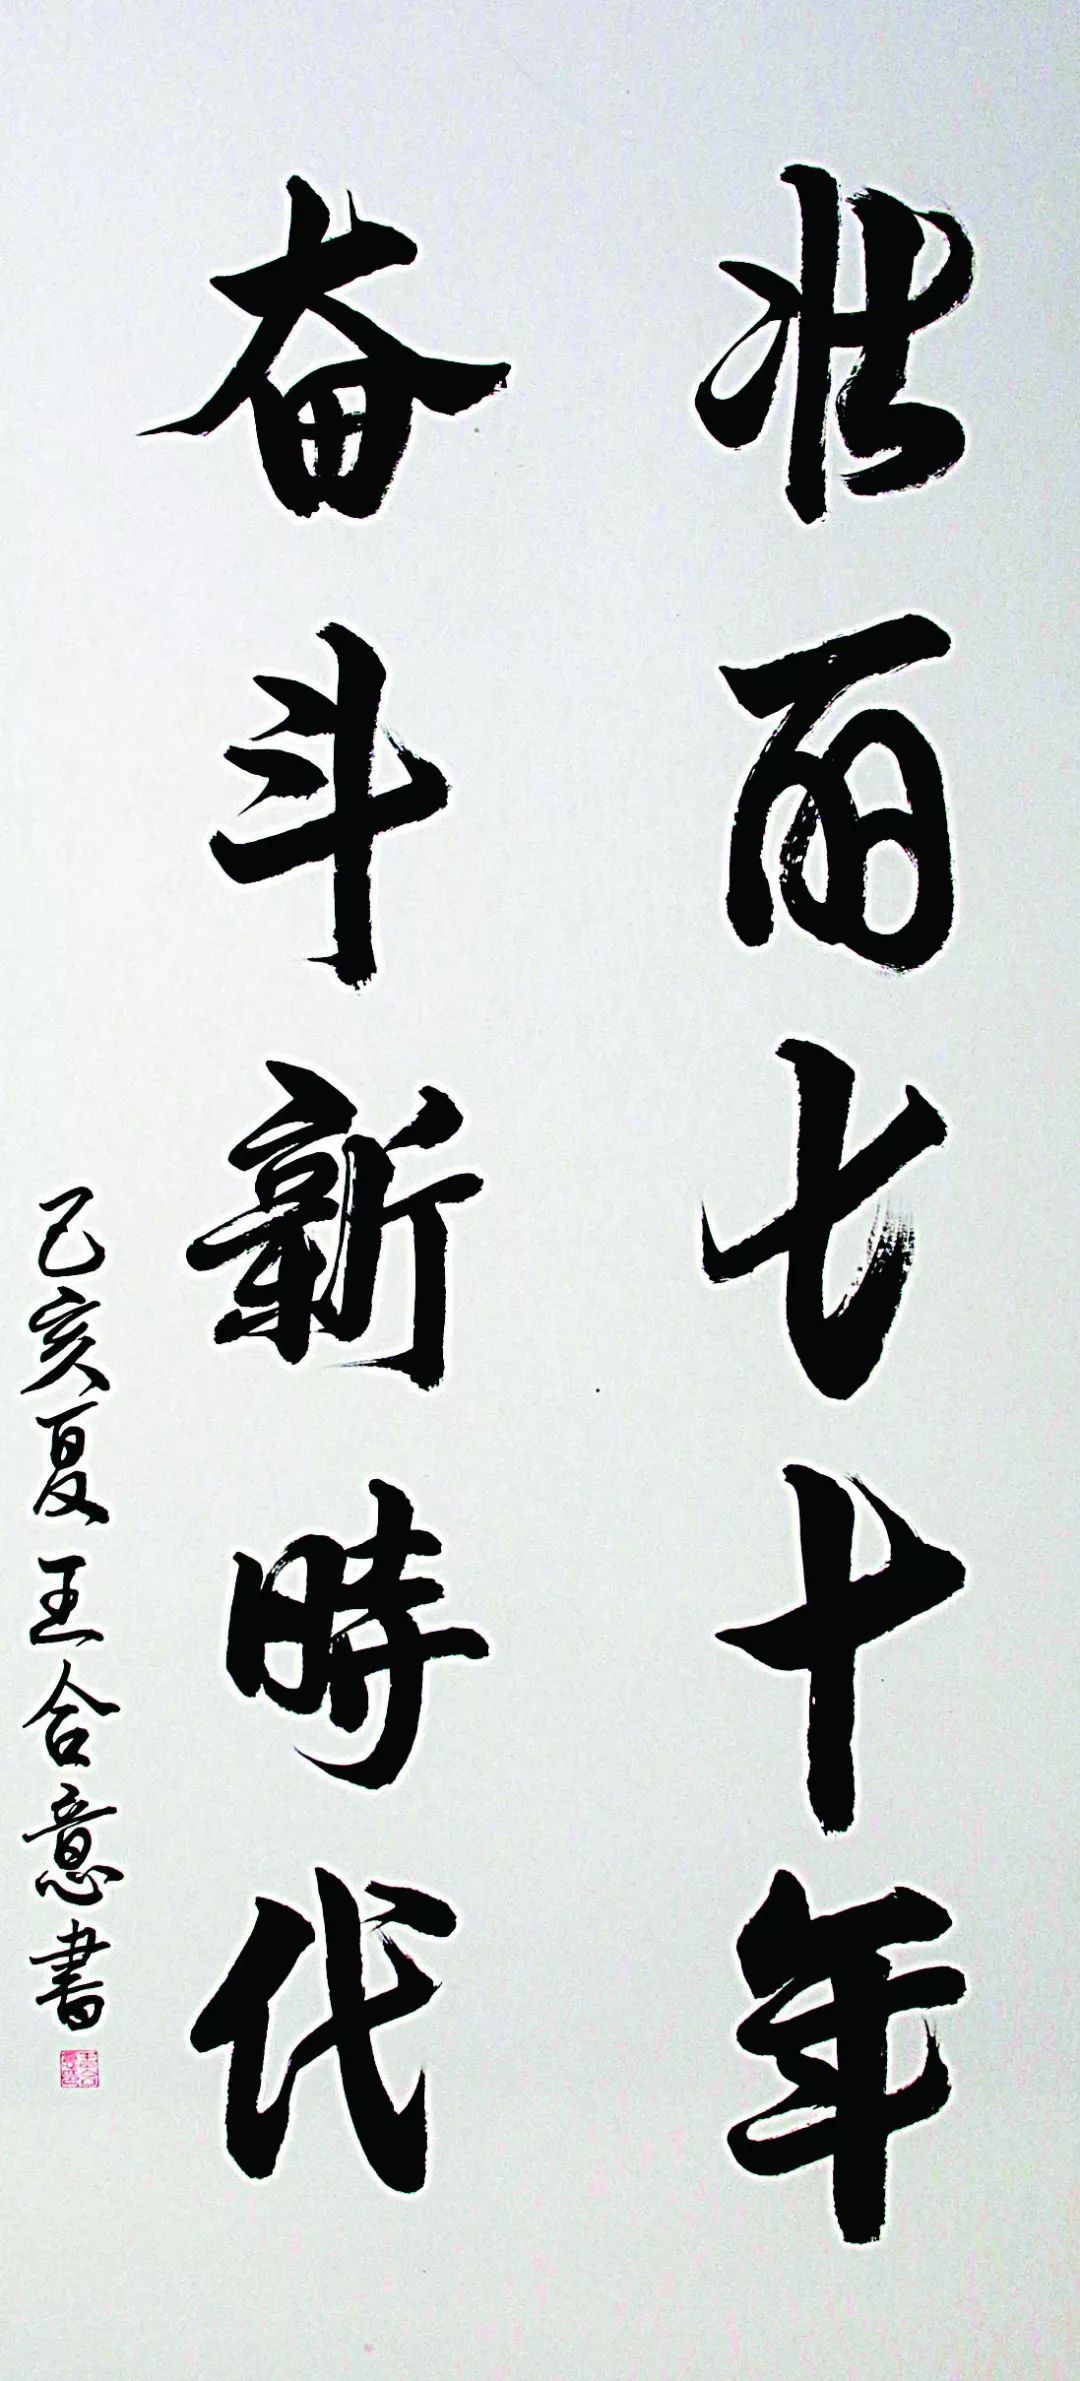 壮丽七十年
奋斗新時代
己亥夏王合意書